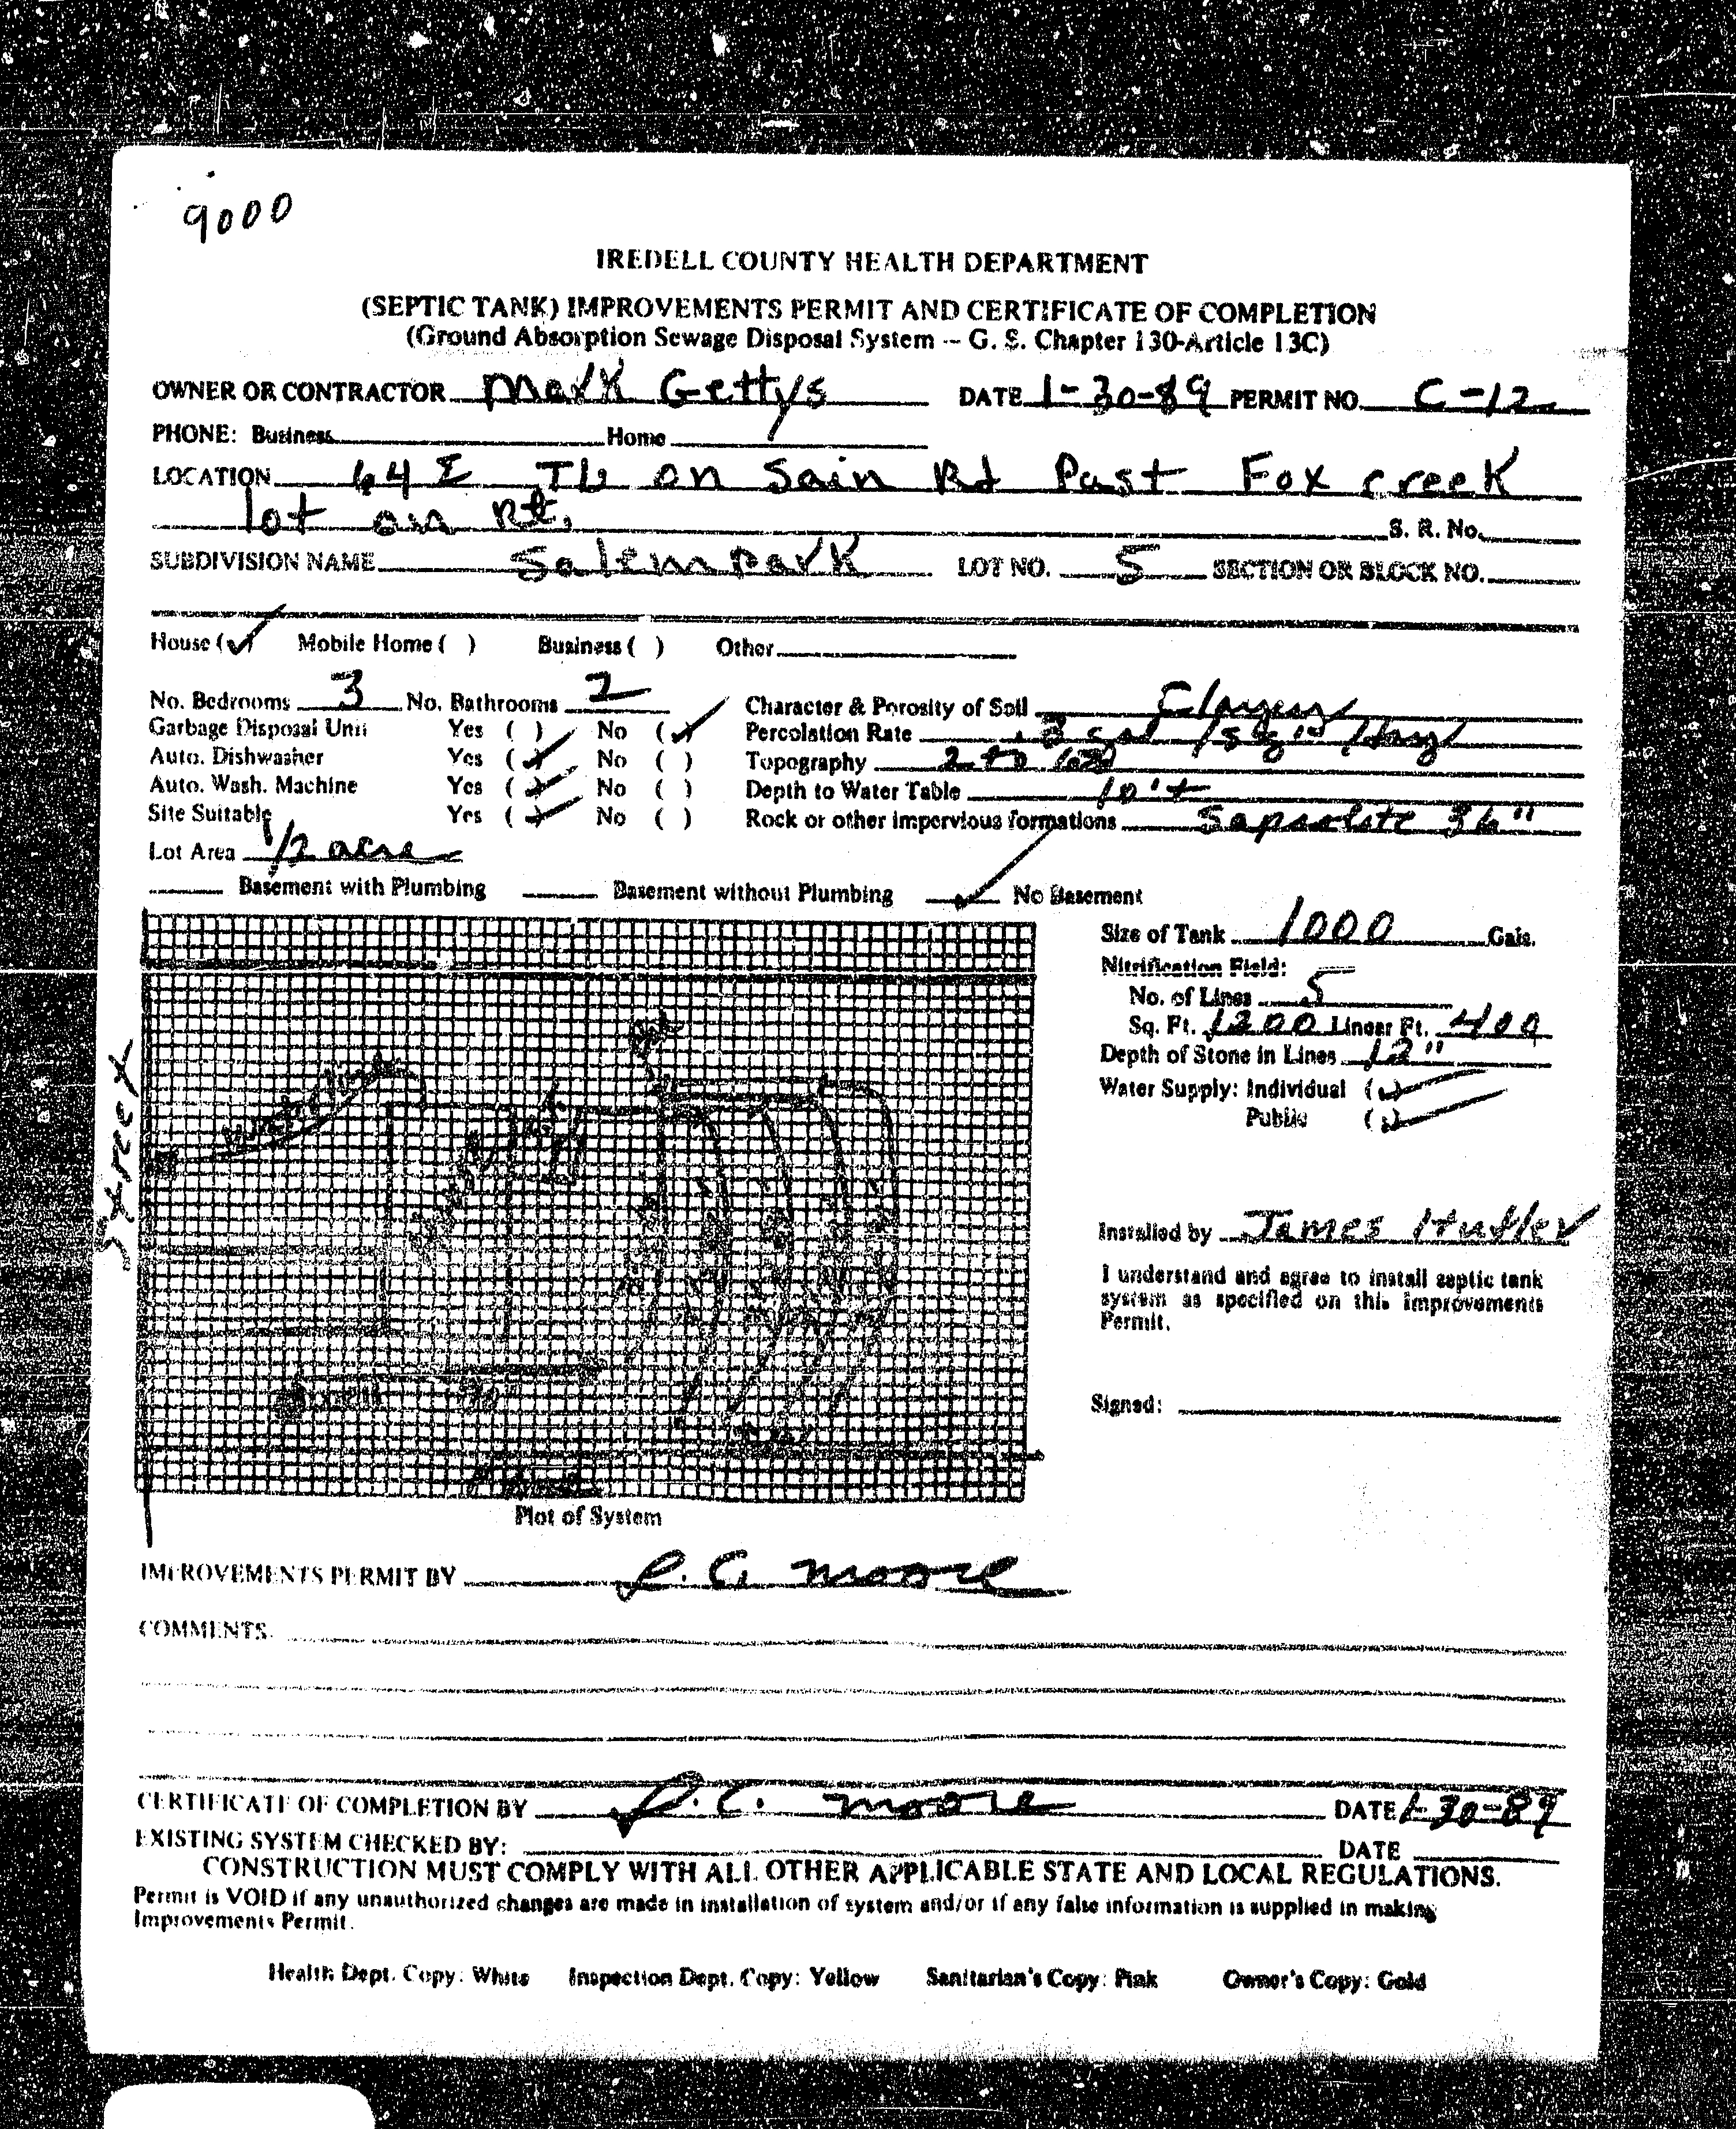 9000
IREDELL COUNTY HEALTH DEPARTMENT
(SEPTIC TANK) IMPROVEMENTS PERMIT AND CERTIFICATE OF COMPLETION
(Ground Absorption Sewage Disposal System -- G. S. Chapter 130-Article 13C)
OWNER OR CONTRACTOR Mark Gettys DATE 1-30-89 PERMIT NO. C-12
PHONE: Business Home
LOCATION 64 E TL on Sain Rd Past Fox creek
lot on Rt. S. R. No.
SUBDIVISION NAME Salem park LOT NO. 5 SECTION OR BLOCK NO.
House (✓) Mobile Home ( ) Business ( ) Other
No. Bedrooms 3 No. Bathrooms 2 Character & Porosity of Soil Clayey
Garbage Disposal Unit Yes ( ) No (✓) Percolation Rate .3 gal /sq /day
Auto. Dishwasher Yes (✓) No ( ) Topography 2 to
Auto. Wash. Machine Yes (✓) No ( ) Depth to Water Table 10'+
Site Suitable Yes (✓) No ( ) Rock or other impervious formations Saprolite 36"
Lot Area 1/2 acre
Basement with Plumbing Basement without Plumbing ✓ No Basement
Size of Tank 1000 Gals.
Nitrification Field:
No. of Lines 5
Sq. Ft. 1200 Linear Ft. 400
Depth of Stone in Lines 12"
Water Supply: Individual (✓)
Public (✓)
Street
Installed by James
I understand and agree to install septic tank
system as specified on this Improvements
Permit.
Signed:
Plot of System
IMPROVEMENTS PERMIT BY L. C. Moore
COMMENTS:
CERTIFICATE OF COMPLETION BY L. C. Moore DATE 1-30-89
EXISTING SYSTEM CHECKED BY: DATE
CONSTRUCTION MUST COMPLY WITH ALL OTHER APPLICABLE STATE AND LOCAL REGULATIONS.
Permit is VOID if any unauthorized changes are made in installation of system and/or if any false information is supplied in making
Improvements Permit.
Health Dept. Copy: White Inspection Dept. Copy: Yellow Sanitarian's Copy: Pink Owner's Copy: Gold